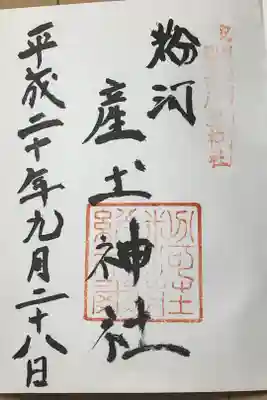 粉河
産土神社
平成二十年九月二十八日